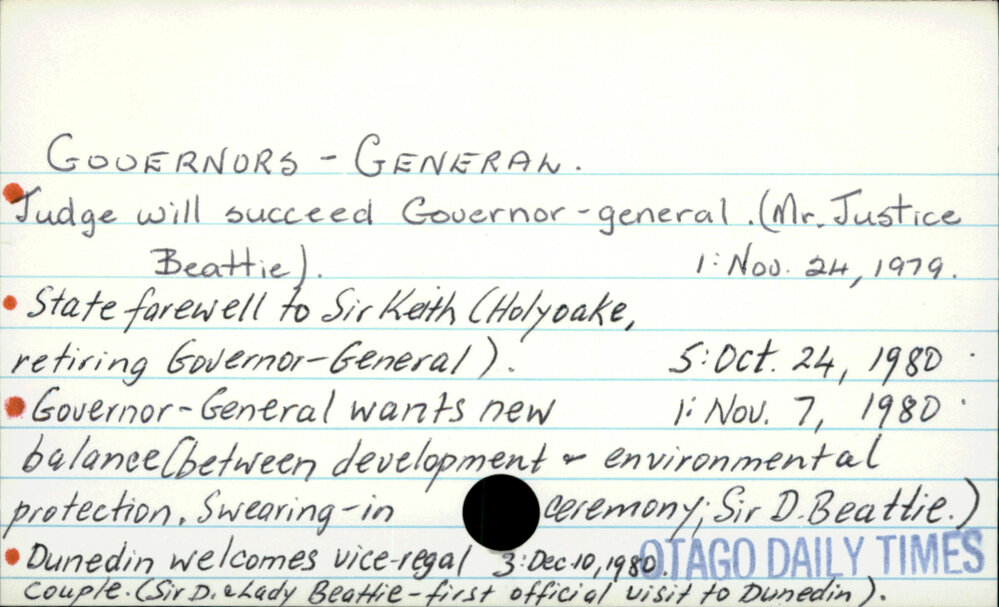 GOVERNORS - GENERAL.
Judge will succeed Governor-general. (Mr. Justice
Beattie). 1: Nov. 24, 1979.
State farewell to Sir Keith (Holyoake,
retiring Governor-General). 5: Oct. 24, 1980.
Governor-General wants new 1: Nov. 7, 1980.
balance (between development & environmental
protection. Swearing-in ceremony; Sir D. Beattie.)
Dunedin welcomes vice-regal 3: Dec. 10, 1980.
OTAGO DAILY TIMES
couple. (Sir D. & Lady Beattie - first official visit to Dunedin).